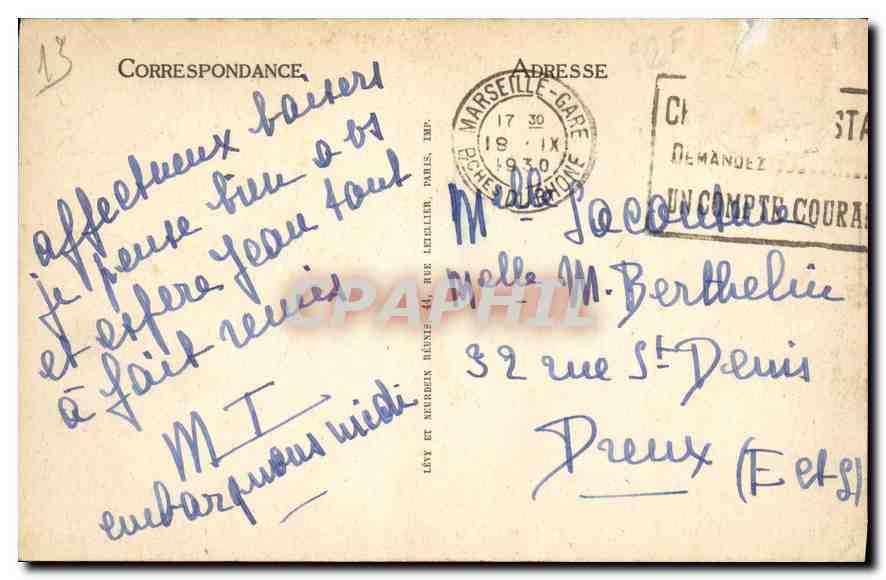 13
CORRESPONDANCE
affectueux baisers
je pense bien a vs
et espere Jean tout
à fait remis
M I
embarquons midi
LÉVY ET NEURDEIN RÉUNIS 44, RUE LETELLIER, PARIS, IMP.
ADRESSE
MARSEILLE-GARE
17 30
18 · IX
1930
BCHES DU RHÔNE
CH STA
DEMANDEZ
UN COMPTE COURA
Melle Lacouture
Melle M. Berthelin
32 rue St Denis
Dreux (E et L)
CPAPHIL